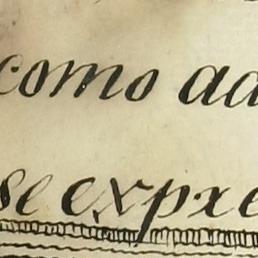 como ad
se expre